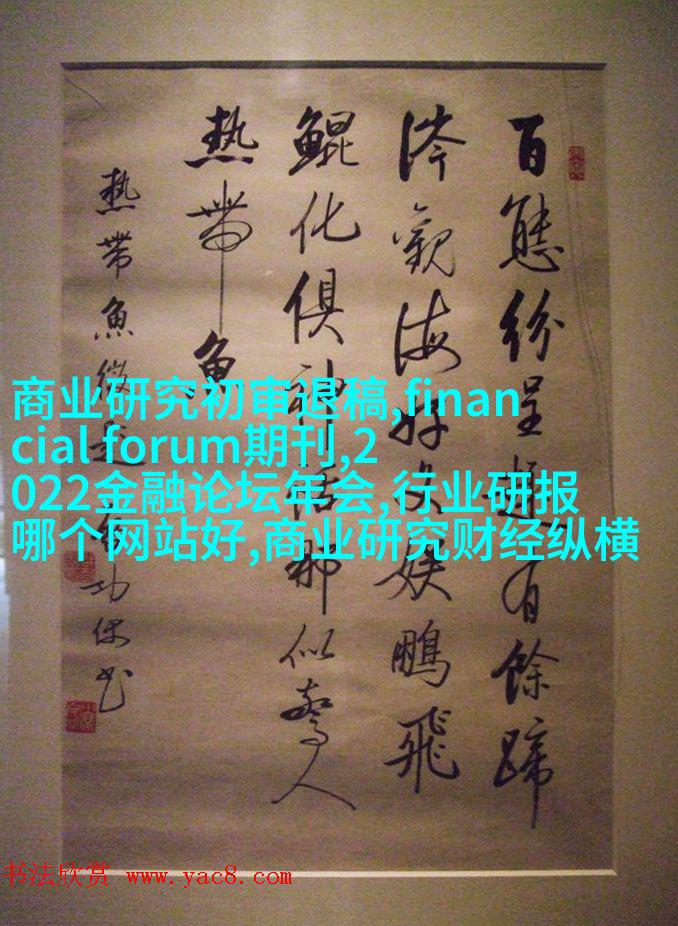 百態紛呈趣有餘蹄
涔觀海好鵬飛
鯤化俱神話那似驚人
热帶魚
热帶魚徵題功
商业研究初审退稿,finan
cial forum期刊,2
022金融论坛年会,行业研报
哪个网站好,商业研究财经纵横
书法欣赏 www.yac8.com